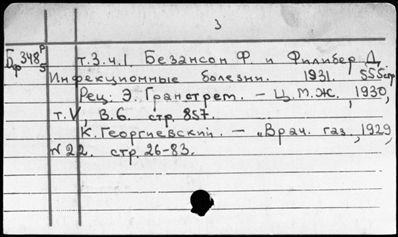 3
Бф 348 Р/5 т.3.ч.1. Безансон Ф. и Филибер Д.
Инфекционные болезни. 1931. 555стр
Рец: Э. Гранстрем. – Ц.М.Ж., 1930,
т.V, В.6. стр. 857.
К. Георгиевский. – „Врач. газ., 1929,
№22. стр. 26-83.